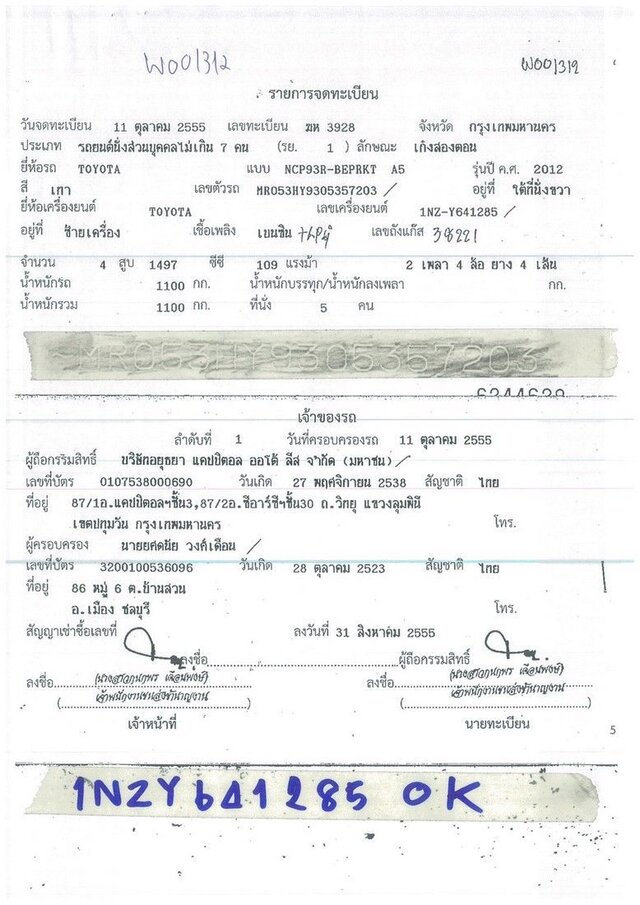 W001312 W001312
รายการจดทะเบียน
วันจดทะเบียน 11 ตุลาคม 2555 เลขทะเบียน ฆห 3928 จังหวัด กรุงเทพมหานคร
ประเภท รถยนต์นั่งส่วนบุคคลไม่เกิน 7 คน (รย. 1 ) ลักษณะ เก๋งสองตอน
ยี่ห้อรถ TOYOTA แบบ NCP93R-BEPRKT A5 รุ่นปี ค.ศ. 2012
สี เทา เลขตัวรถ MR053HY9305357203 / อยู่ที่ ใต้ที่นั่งขวา
ยี่ห้อเครื่องยนต์ TOYOTA เลขเครื่องยนต์ 1NZ-Y641285 /
อยู่ที่ ซ้ายเครื่อง เชื้อเพลิง เบนซิน เลขถังแก๊ส 38221
จำนวน 4 สูบ 1497 ซีซี 109 แรงม้า 2 เพลา 4 ล้อ ยาง 4 เส้น
น้ำหนักรถ 1100 กก. น้ำหนักบรรทุก/น้ำหนักลงเพลา กก.
น้ำหนักรวม 1100 กก. ที่นั่ง 5 คน
MR053HY9305357203
เจ้าของรถ
ลำดับที่ 1 วันที่ครอบครองรถ 11 ตุลาคม 2555
ผู้ถือกรรมสิทธิ์ บริษัทอยุธยา แคปปิตอล ออโต้ ลีส จำกัด (มหาชน) /
เลขที่บัตร 0107538000690 วันเกิด 27 พฤศจิกายน 2538 สัญชาติ ไทย
ที่อยู่ 87/1อ.แคปปิตอลฯชั้น3,87/2อ.ซีอาร์ซีฯชั้น30 ถ.วิทยุ แขวงลุมพินี
เขตปทุมวัน กรุงเทพมหานคร โทร.
ผู้ครอบครอง นายยศดนัย วงค์เดือน /
เลขที่บัตร 3200100536096 วันเกิด 28 ตุลาคม 2523 สัญชาติ ไทย
ที่อยู่ 86 หมู่ 6 ต.บ้านสวน
อ.เมือง ชลบุรี โทร.
สัญญาเช่าซื้อเลขที่ ลงวันที่ 31 สิงหาคม 2555
ลงชื่อ ผู้ถือกรรมสิทธิ์
ลงชื่อ ลงชื่อ
เจ้าพนักงานขนส่งชำนาญงาน เจ้าพนักงานขนส่งชำนาญงาน
เจ้าหน้าที่ นายทะเบียน
5
1NZY641285 OK